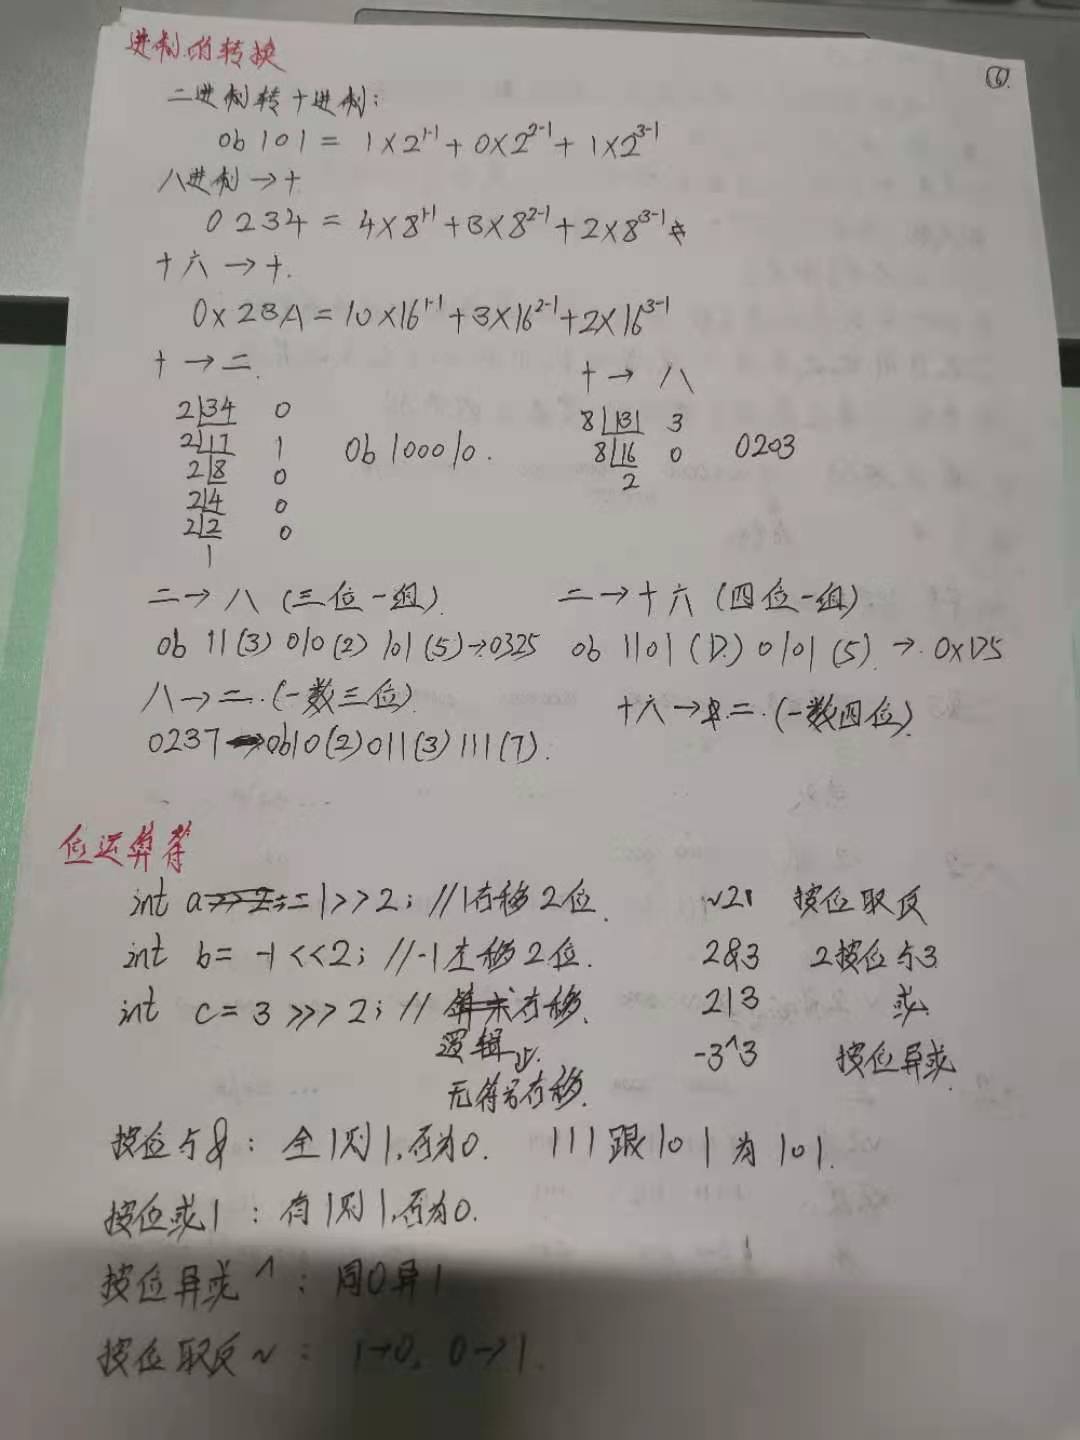 进制的转换
⑥.
二进制转十进制:
0b101 = 1×2^1-1 + 0×2^2-1 + 1×2^3-1
八进制→十
0234 = 4×8^1-1 + 3×8^2-1 + 2×8^3-1
十六→十.
0x23A = 10×16^1-1 + 3×16^2-1 + 2×16^3-1
十→二.
2|34 0
2|17 1
2|8 0
2|4 0
2|2 0
1
0b100010.
十→八
8|131 3
8|16 0
2
0203
二→八 (三位一组).
0b 11(3) 010(2) 101(5)→0325
二→十六 (四位一组)
0b 1101(D.) 0101(5).→.0xD5
八→二.(一数三位).
0237→0b10(2)011(3)111(7).
十六→二.(一数四位).
位运算符
int a = 1>>2; //1右移2位.
int b = -1<<2; //-1左移2位.
int c = 3>>>2; // 算术右移.
逻辑
无符号右移.
~21 按位取反
2&3 2按位与3
2|3 或
-3^3 按位异或
按位与&: 全1则1,否为0. 111跟101为101.
按位或|: 有1则1,否为0.
按位异或^: 同0异1
按位取反~: 1→0, 0→1.